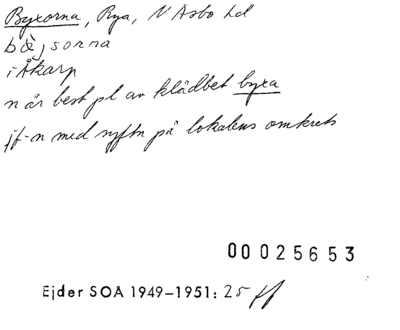 Byxorna, Rya, N Åsbo hd
bæ̀jsorna
i Åkarp
n är best pl av klädbet byxa
jf-n med syftn på lokalens omkrets
00025653
Ejder SOA 1949–1951: 25 ff